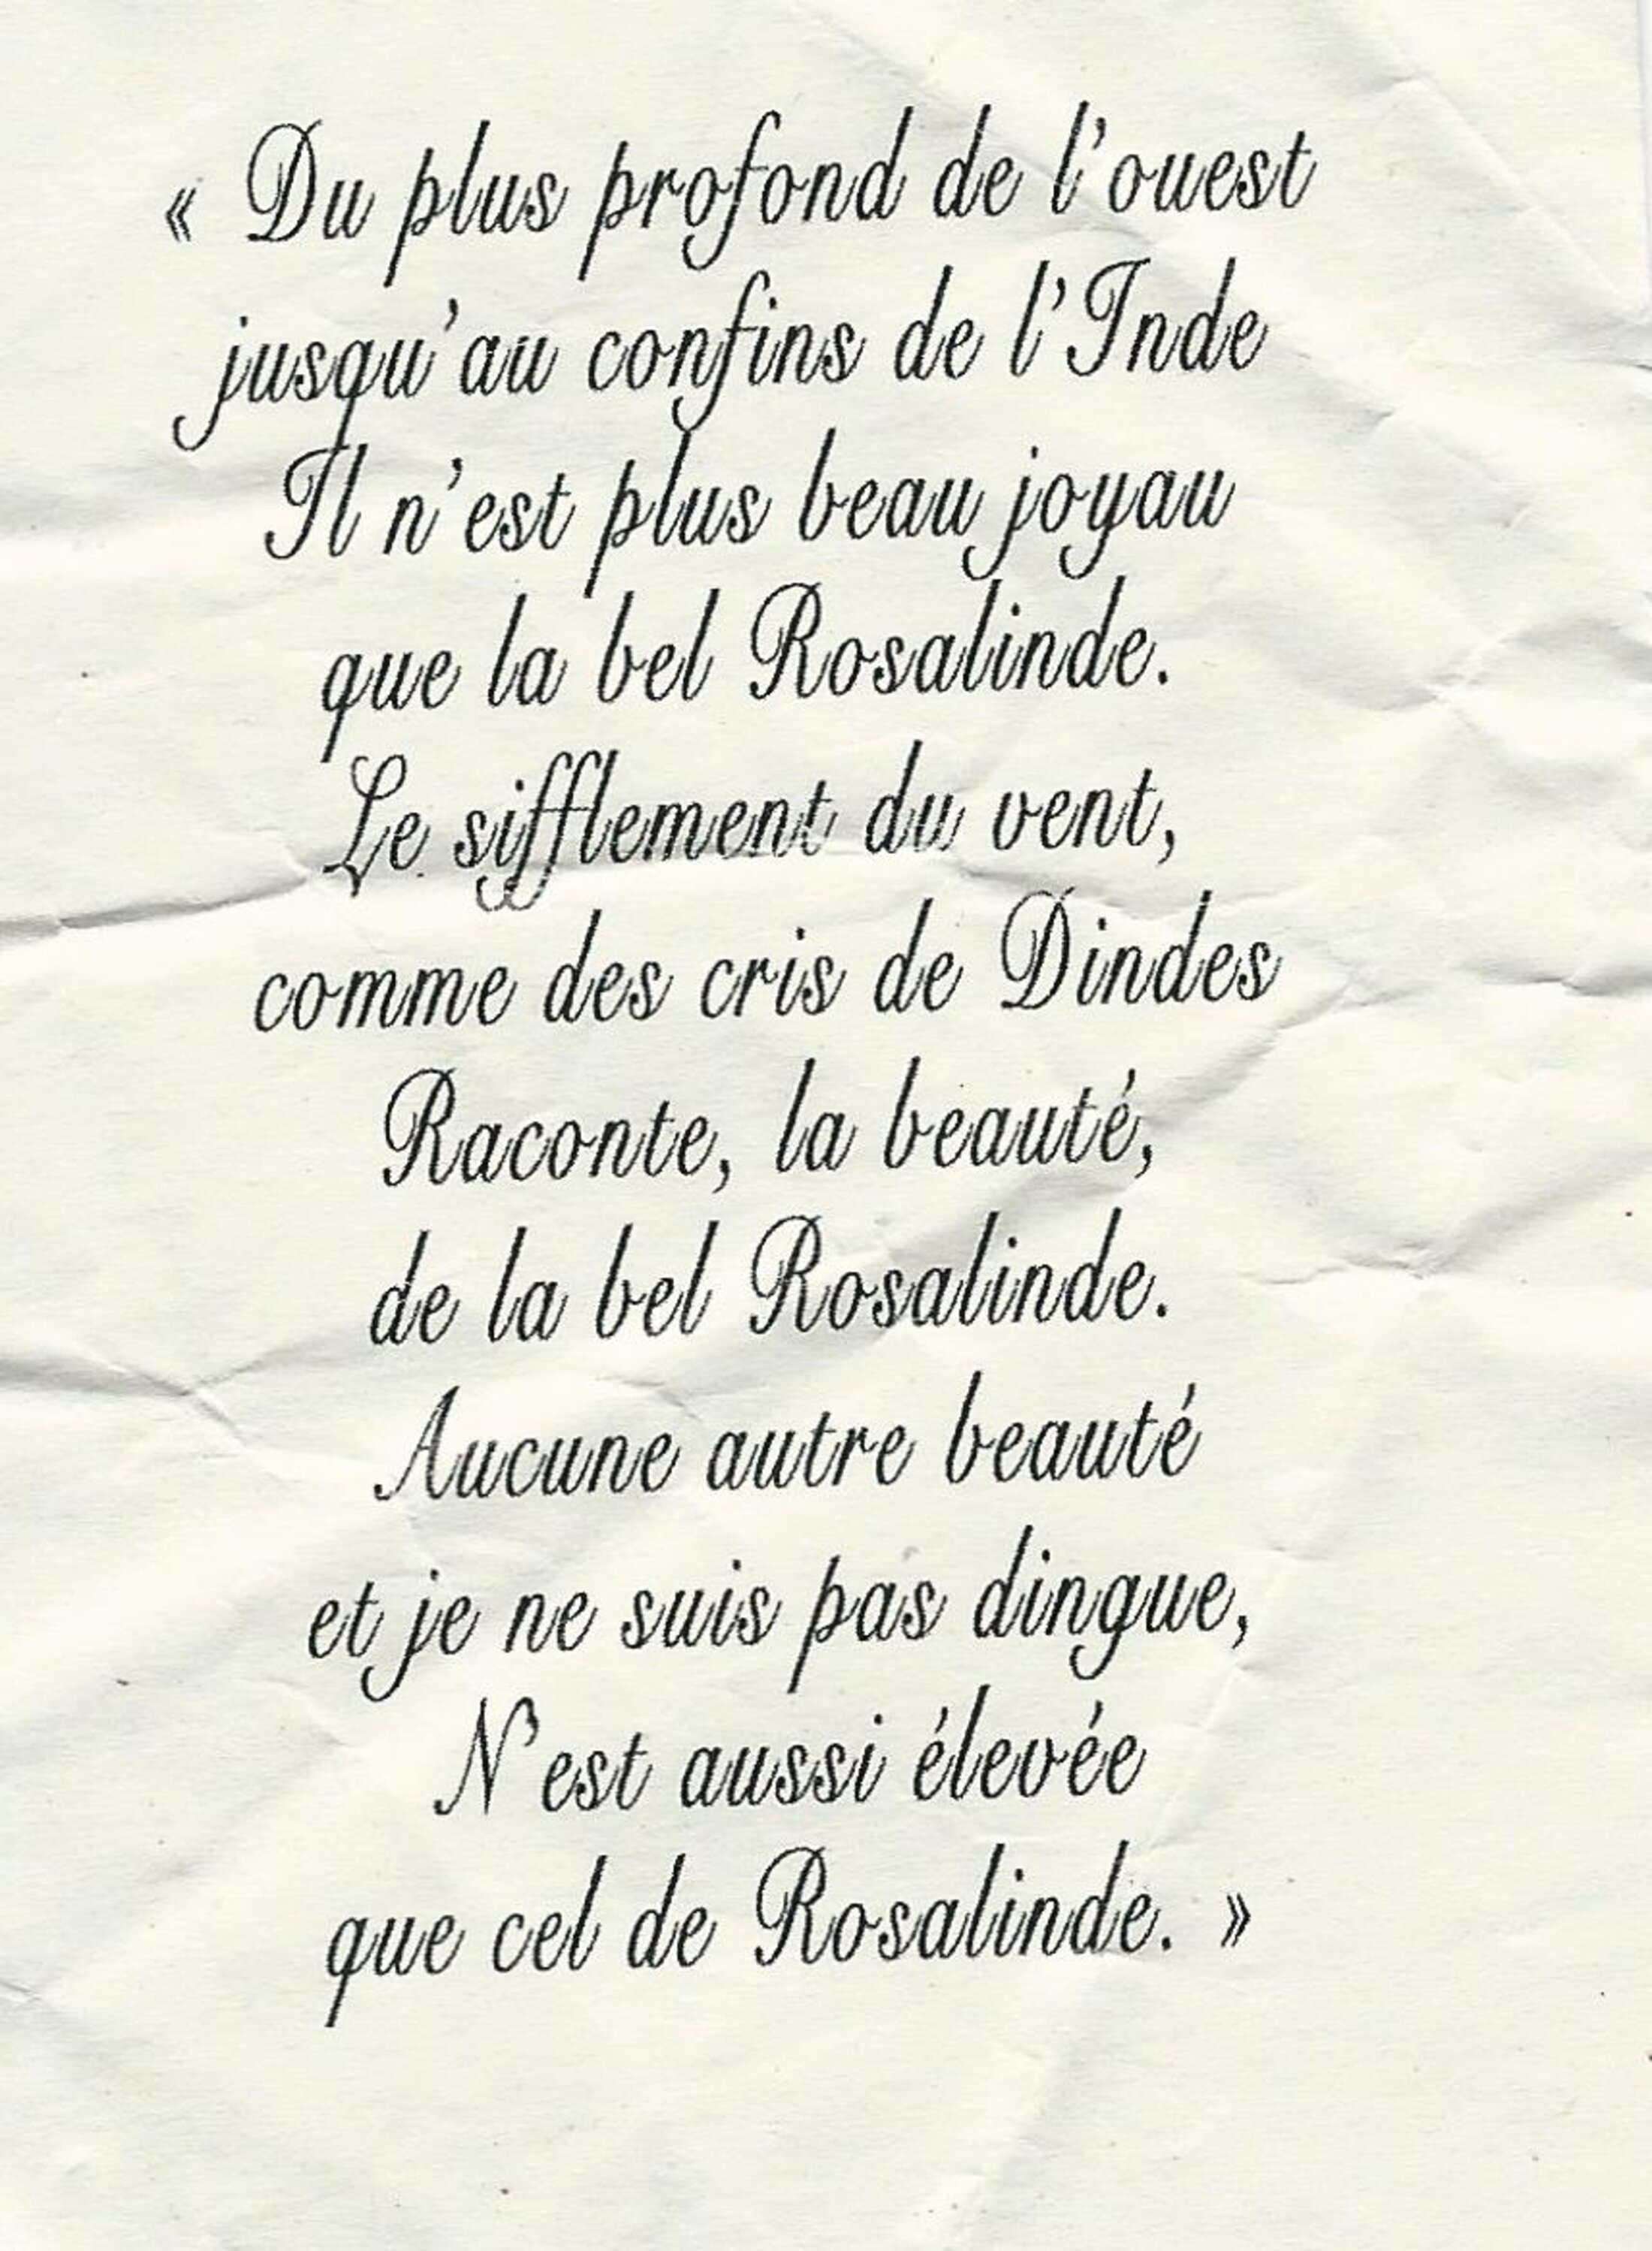 « Du plus profond de l'ouest
jusqu'au confins de l'Inde
Il n'est plus beau joyau
que la bel Rosalinde.
Le sifflement du vent,
comme des cris de Dindes
Raconte, la beauté,
de la bel Rosalinde.
Aucune autre beauté
et je ne suis pas dingue,
N'est aussi élevée
que cel de Rosalinde. »